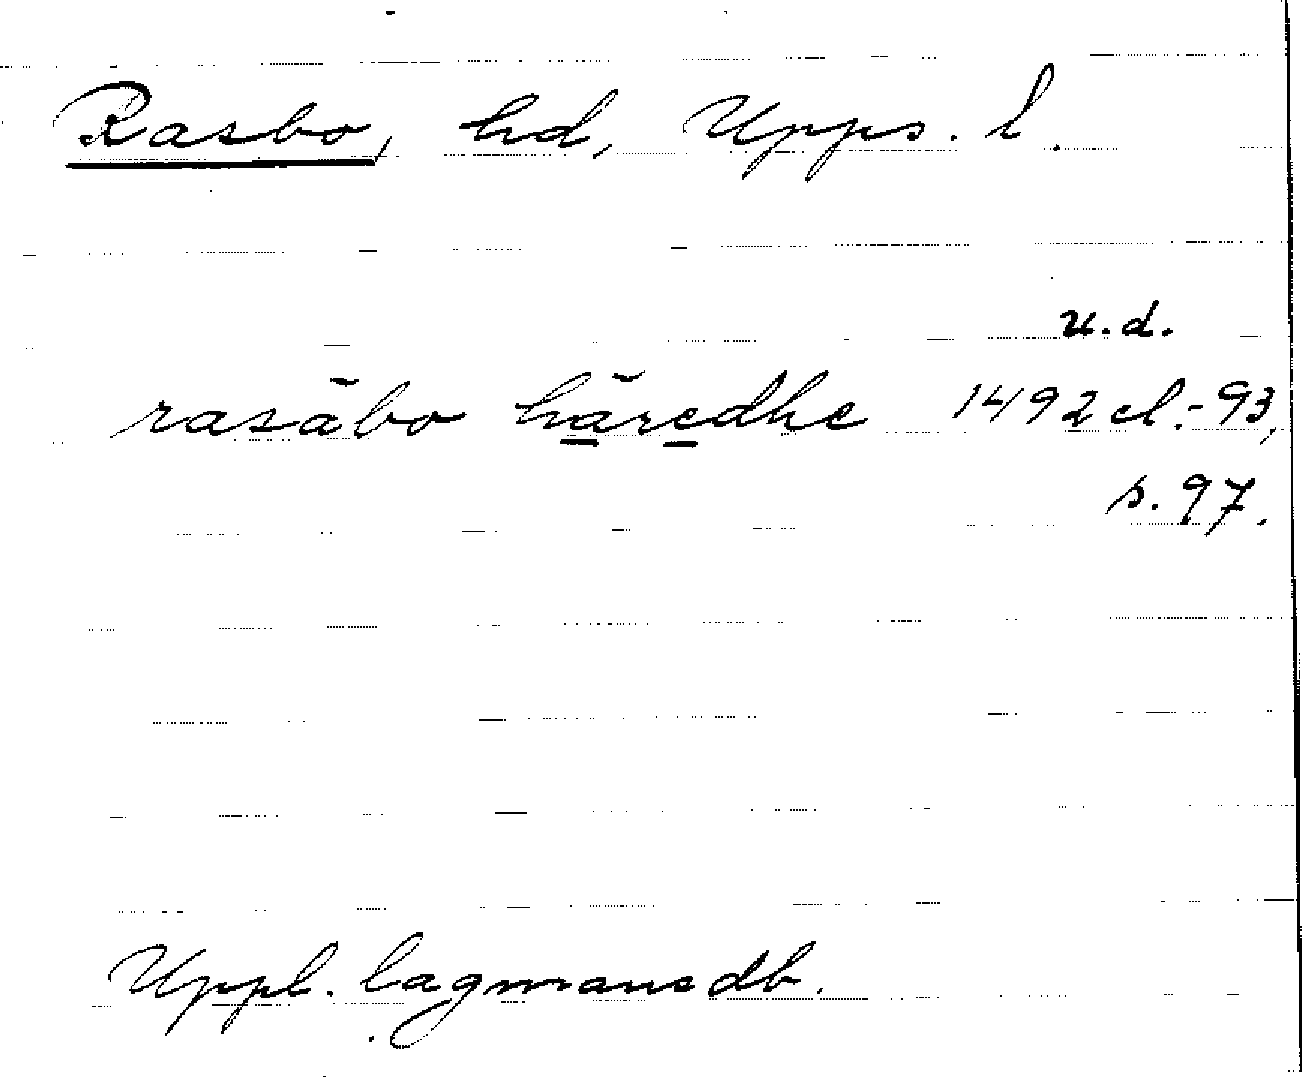 Rasbo, hd, Upps. l.
u.d.
rasābo hāredhe 1492 el.-93,
s. 97.
Uppl. lagmansdb.